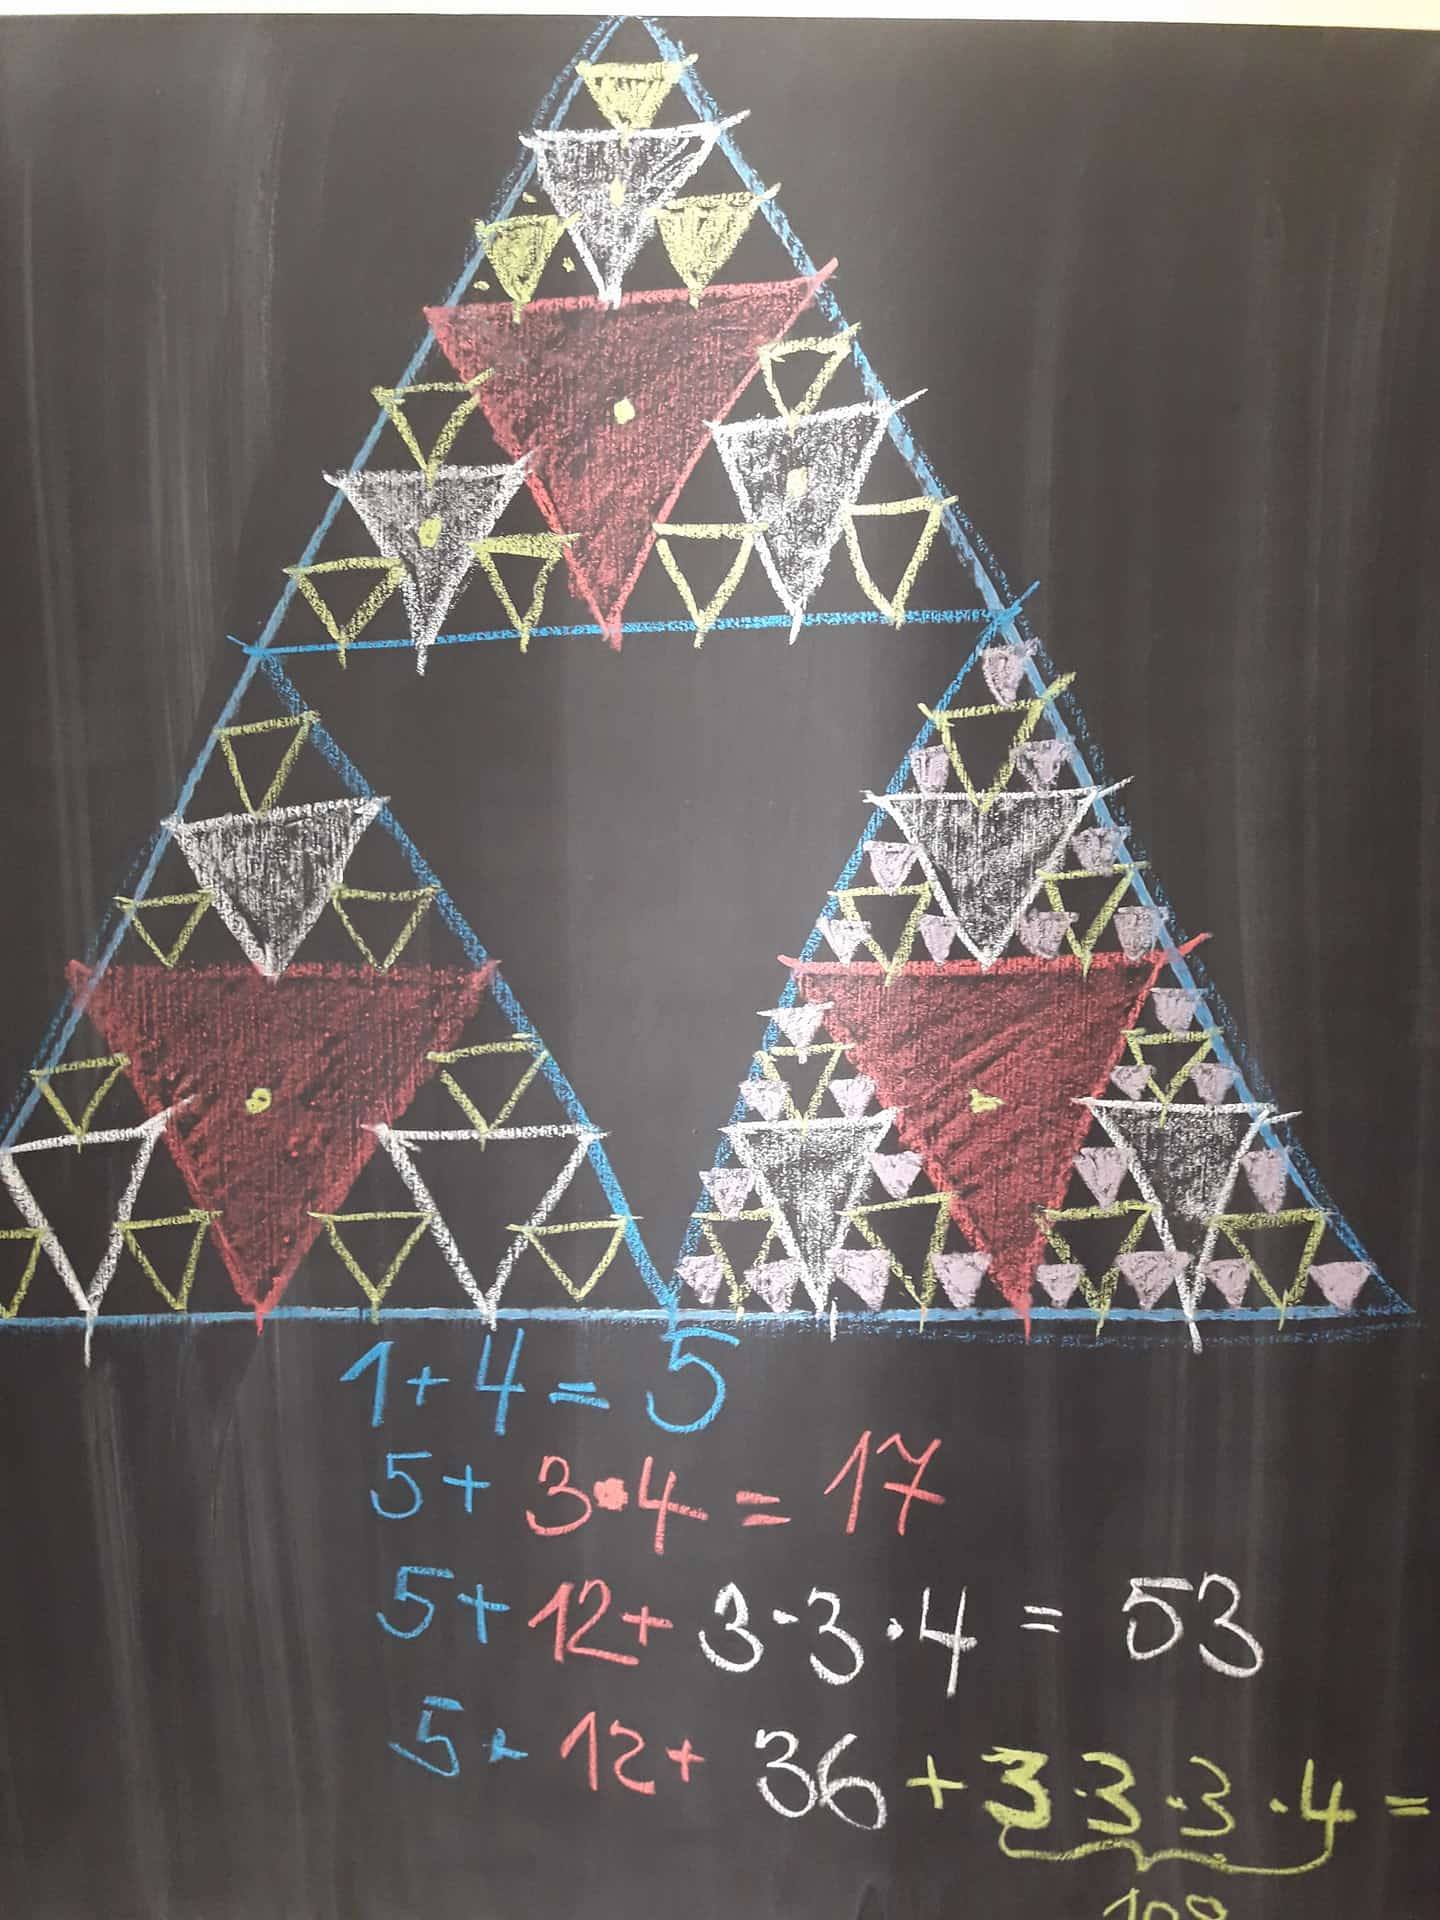 1+4=5
5+ 3·4 = 17
5+ 12+ 3·3·4 = 53
5+ 12+ 36 + 3·3·3·4 =
108